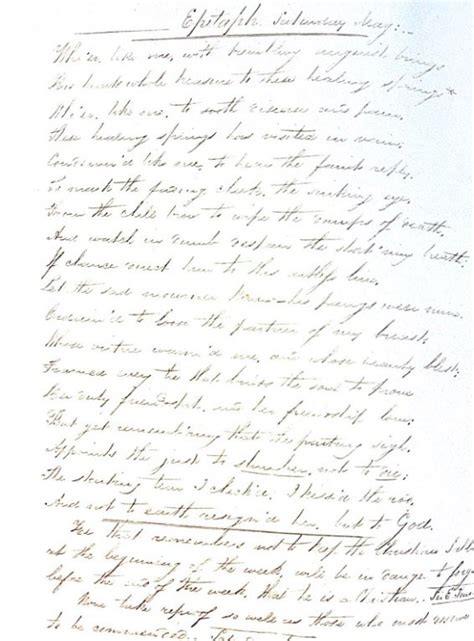 Epitaph. Saturday Mag:
Who'er, like me, with trembling anguish brings
His heart's whole treasure to these healing springs*
Who'er, like me, to sooth disease and pain,
These healing springs has visited in vain;
Condemn'd like me, to hear the faint reply,
To mark the fading cheek, the sinking eye,
From the chill brow to wipe the damps of death,
And watch in dumb despair the short'ning breath:
If chance direct him to this artless line,
Let the sad mourner know his pangs were mine.
Ordain'd to lose the partner of my breast,
Whose virtue warm'd me, and whose beauty blest;
Framed every tie that binds the soul to prove
Her duty friendship, and her friendship love.
But yet rememb'ring that the parting sigh,
Appoints the just to slumber, not to die;
The starting tear I check'd, I kiss'd the rod,
And not to earth resign'd her, but to God.
that remembers not to keep the Christian
at the beginning of the week will be in danger to
before the end of the week, that he is a Christian.
take reproof so well as those who most
to be commenced